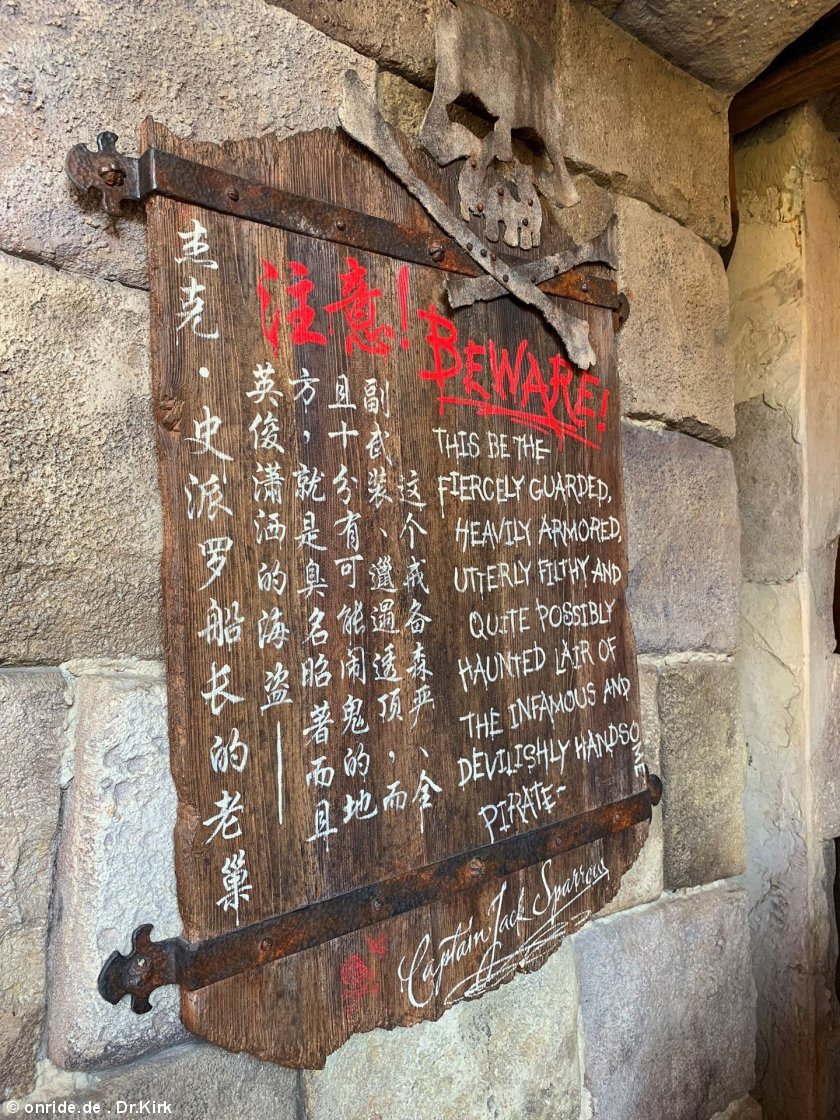 注意!
这个戒备森严、全
副武装、邋遢透顶，而
且十分有可能闹鬼的地
方，就是臭名昭著而且
英俊潇洒的海盗——
杰克·史派罗船长的老巢
BEWARE!
THIS BE THE
FIERCELY GUARDED,
HEAVILY ARMORED,
UTTERLY FILTHY AND
QUITE POSSIBLY
HAUNTED LAIR OF
THE INFAMOUS AND
DEVILISHLY HANDSOME
PIRATE-
Captain Jack Sparrow
© onride.de . Dr.Kirk